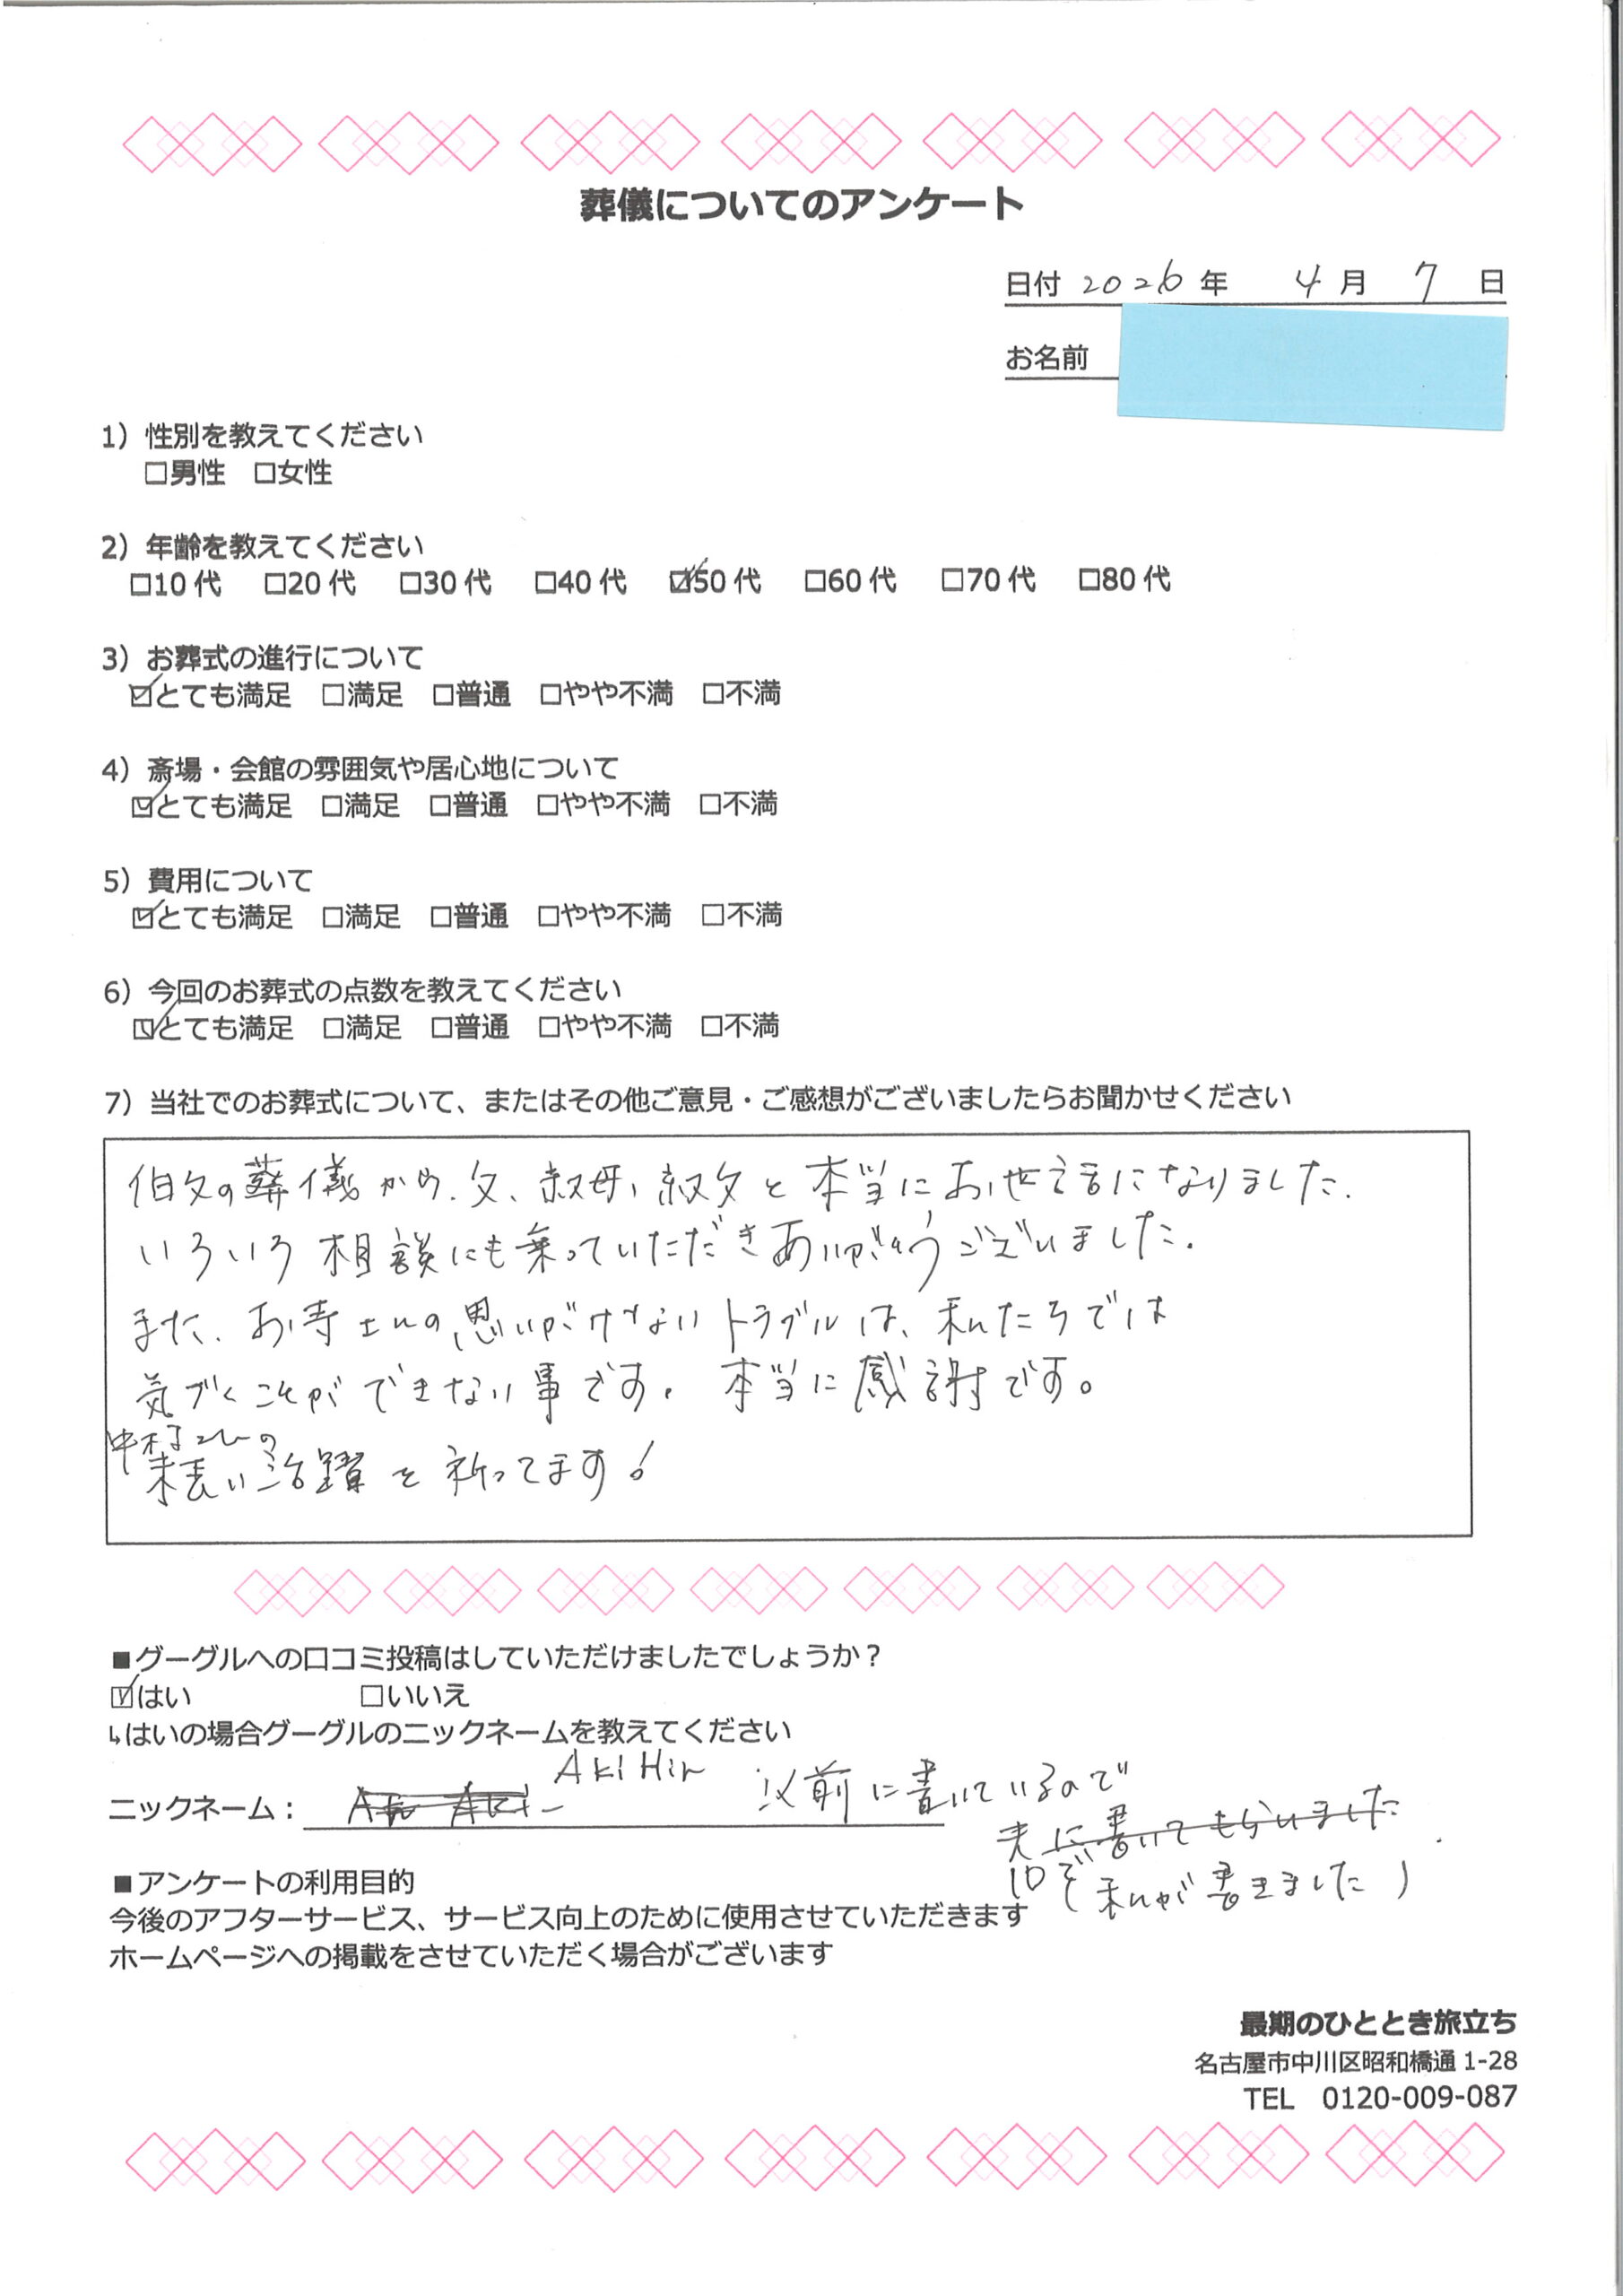 葬儀についてのアンケート
日付 2026 年 4 月 7 日
お名前
1）性別を教えてください
□男性 □女性
2）年齢を教えてください
□10 代 □20 代 □30 代 □40 代 ☑50 代 □60 代 □70 代 □80 代
3）お葬式の進行について
☑とても満足 □満足 □普通 □やや不満 □不満
4）斎場・会館の雰囲気や居心地について
☑とても満足 □満足 □普通 □やや不満 □不満
5）費用について
☑とても満足 □満足 □普通 □やや不満 □不満
6）今回のお葬式の点数を教えてください
☑とても満足 □満足 □普通 □やや不満 □不満
7）当社でのお葬式について、またはその他ご意見・ご感想がございましたらお聞かせください
伯父の葬儀から、父、叔母、叔父と本当にお世話になりました.
いろいろ相談にも乗っていただきありがとうございました.
また、お寺さんの思いがけないトラブルは、私たちでは
気づくことができない事です. 本当に感謝です。
中村さんの
末長い活躍を祈ってます!
■グーグルへの口コミ投稿はしていただけましたでしょうか？
☑はい □いいえ
↳はいの場合グーグルのニックネームを教えてください
AkiHir
ニックネーム： 以前に書いているので
夫に書いてもらいました
私が書きました)
■アンケートの利用目的
今後のアフターサービス、サービス向上のために使用させていただきます
ホームページへの掲載をさせていただく場合がございます
最期のひととき旅立ち
名古屋市中川区昭和橋通 1-28
TEL 0120-009-087